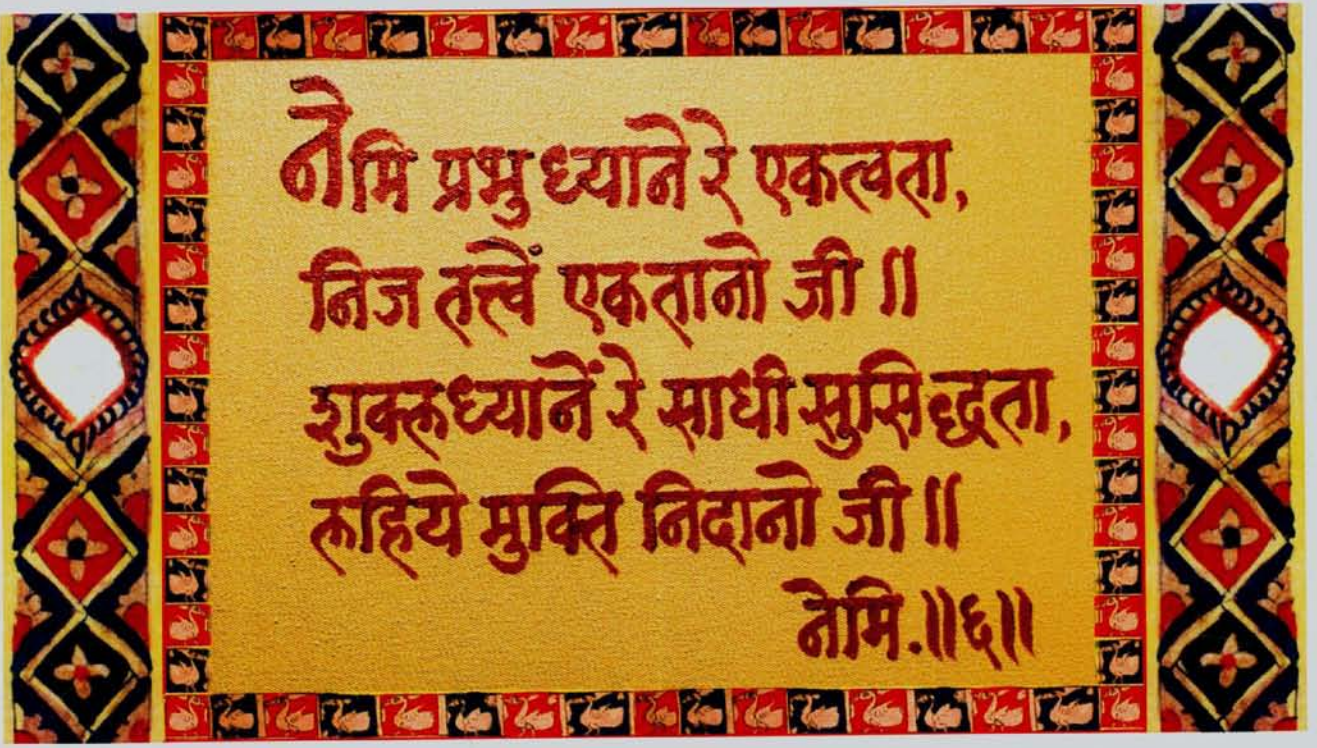 नेमि प्रभु ध्याने रे एकत्वता,
निज तत्त्वें एकतानो जी ॥
शुक्लध्यानें रे साधी सुसिद्धता,
लहिये मुक्ति निदानो जी ॥
नेमि.॥६॥